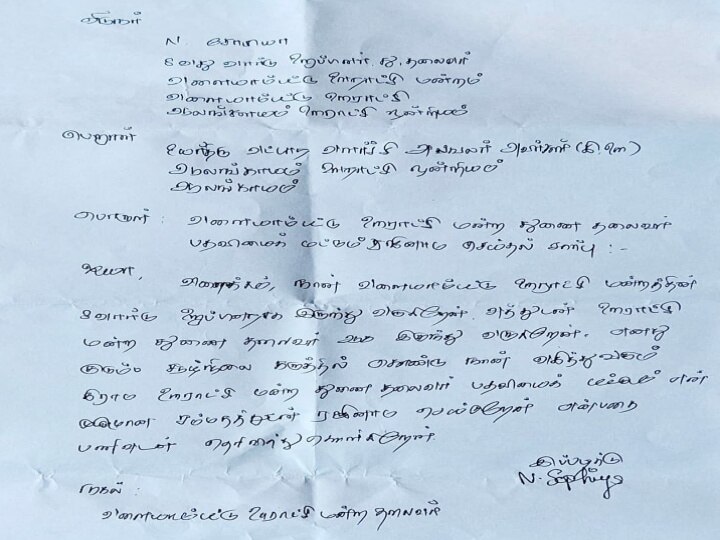 விடுநர்
N. சோபியா
8 வது வார்டு உறுப்பினர், து. தலைவர்
விளையாம்பட்டு ஊராட்சி மன்றம்
விளையாம்பட்டு ஊராட்சி
ஆலங்காயம் ஊராட்சி ஒன்றியம்
பெறுநர்
வட்டார வளர்ச்சி அலுவலர் அவர்கள் (கி.ஊ)
ஆலங்காயம் ஊராட்சி ஒன்றியம்
ஆலங்காயம்
பொருள் : விளையாம்பட்டு ஊராட்சி மன்ற துணை தலைவர்
பதவியைமட்டும் ராஜினாமா செய்தல் சார்பு :-
ஐயா,
வணக்கம், நான் விளையாம்பட்டு ஊராட்சி மன்றத்தின்
8 வார்டு உறுப்பினராக இருந்து வருகிறேன். அத்துடன் ஊராட்சி
மன்ற துணை தலைவர் ஆக இருந்து வருகிறேன். எனது
குடும்ப சூழ்நிலை கருத்தில் கொண்டு நான் வகித்து வரும்
கிராம ஊராட்சி மன்ற துணை தலைவர் பதவியை மட்டும் என்
முழுமான சம்மதத்துடன் ராஜினாமா செய்கிறேன் என்பதை
பணிவுடன் தெரிவித்து கொள்கிறேன்.
இப்படிக்கு
N. Sophiya
நகல் :
விளையாம்பட்டு ஊராட்சி மன்ற தலைவர்